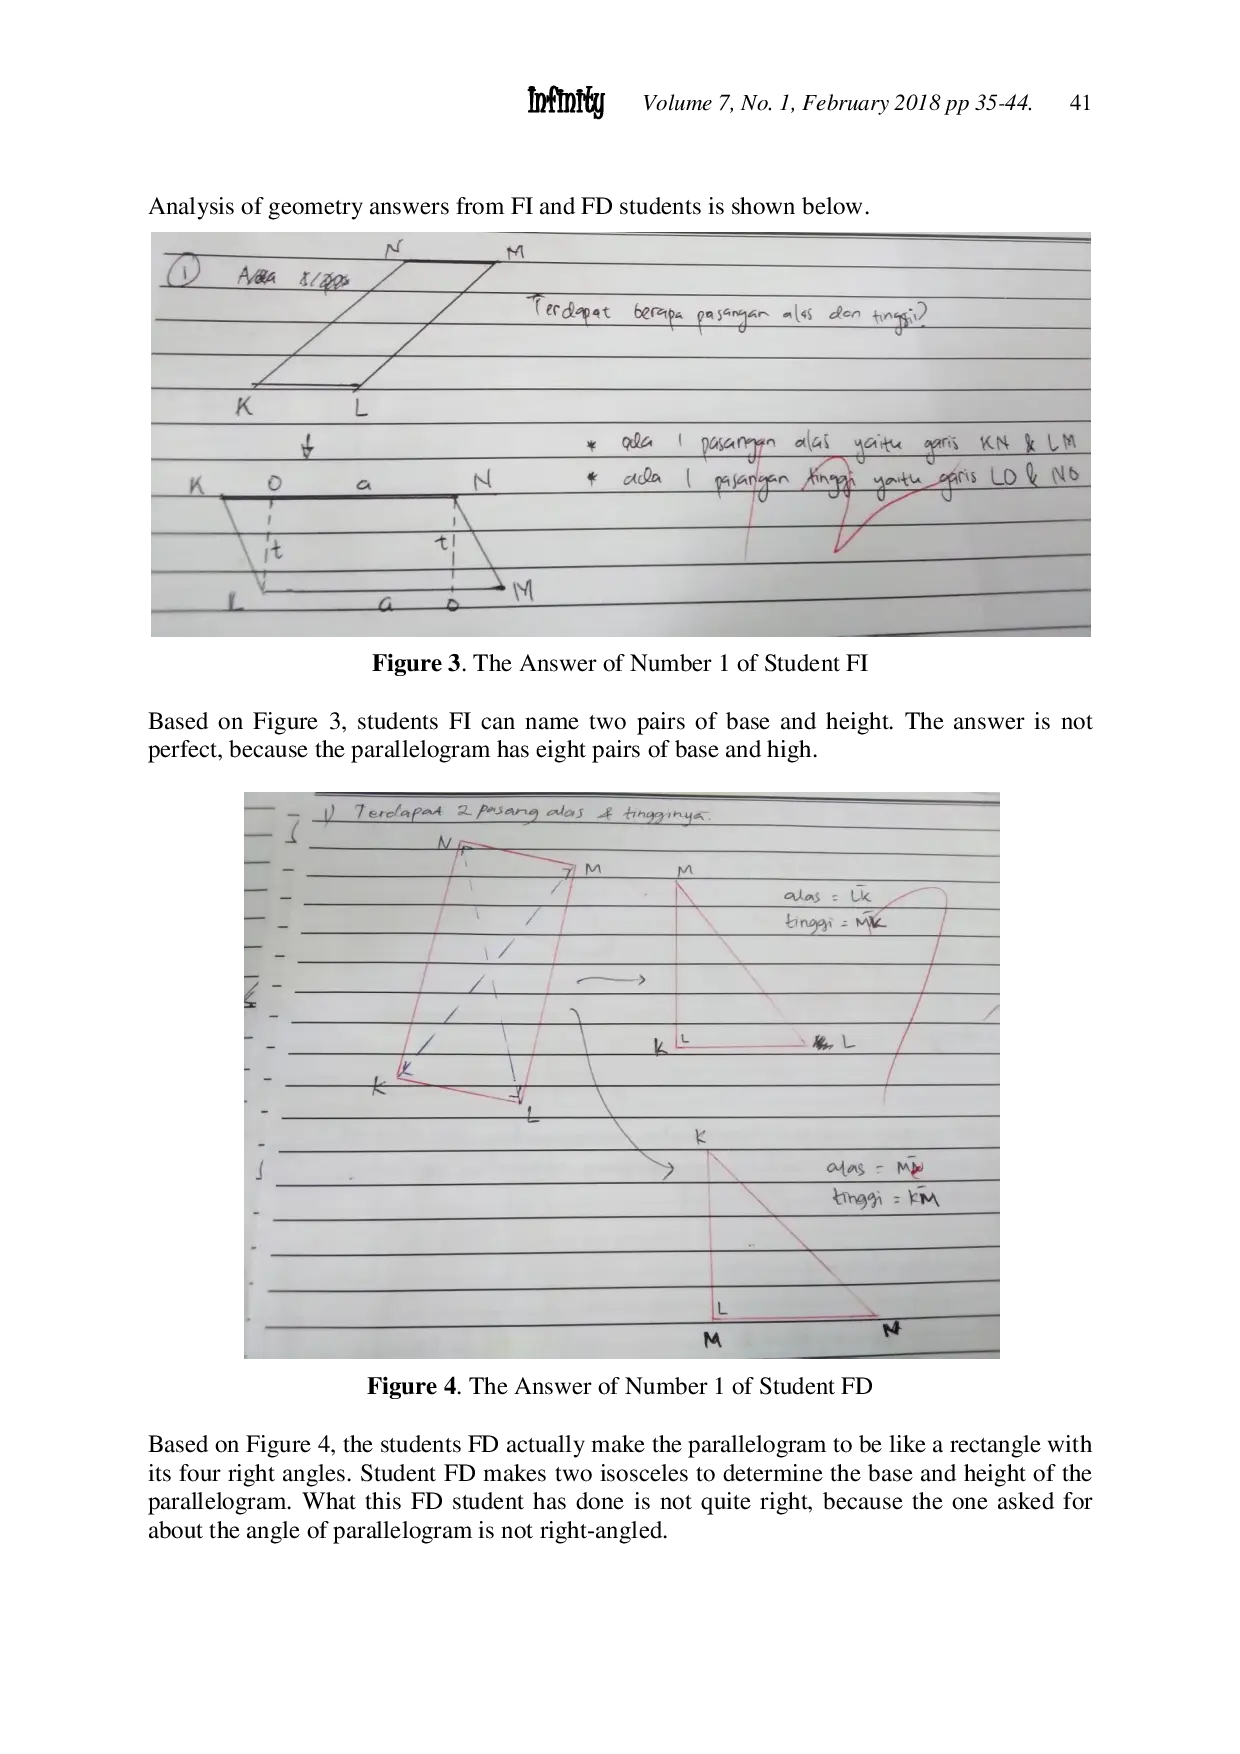 Infinity Volume 7, No. 1, February 2018 pp 35-44. 41
Analysis of geometry answers from FI and FD students is shown below.
N M
1
Terdapat berapa pasangan alas dan tinggi?
K L
* ada 1 pasangan alas yaitu garis KN & LM
K O a N
* ada 1 pasangan tinggi yaitu garis LO & NO
t t
L a O M
Figure 3. The Answer of Number 1 of Student FI
Based on Figure 3, students FI can name two pairs of base and height. The answer is not
perfect, because the parallelogram has eight pairs of base and high.
1) Terdapat 2 pasang alas & tingginya.
N M M
alas = LK
tinggi = MK
K L
K L
K
alas =
tinggi = KM
M N
Figure 4. The Answer of Number 1 of Student FD
Based on Figure 4, the students FD actually make the parallelogram to be like a rectangle with
its four right angles. Student FD makes two isosceles to determine the base and height of the
parallelogram. What this FD student has done is not quite right, because the one asked for
about the angle of parallelogram is not right-angled.